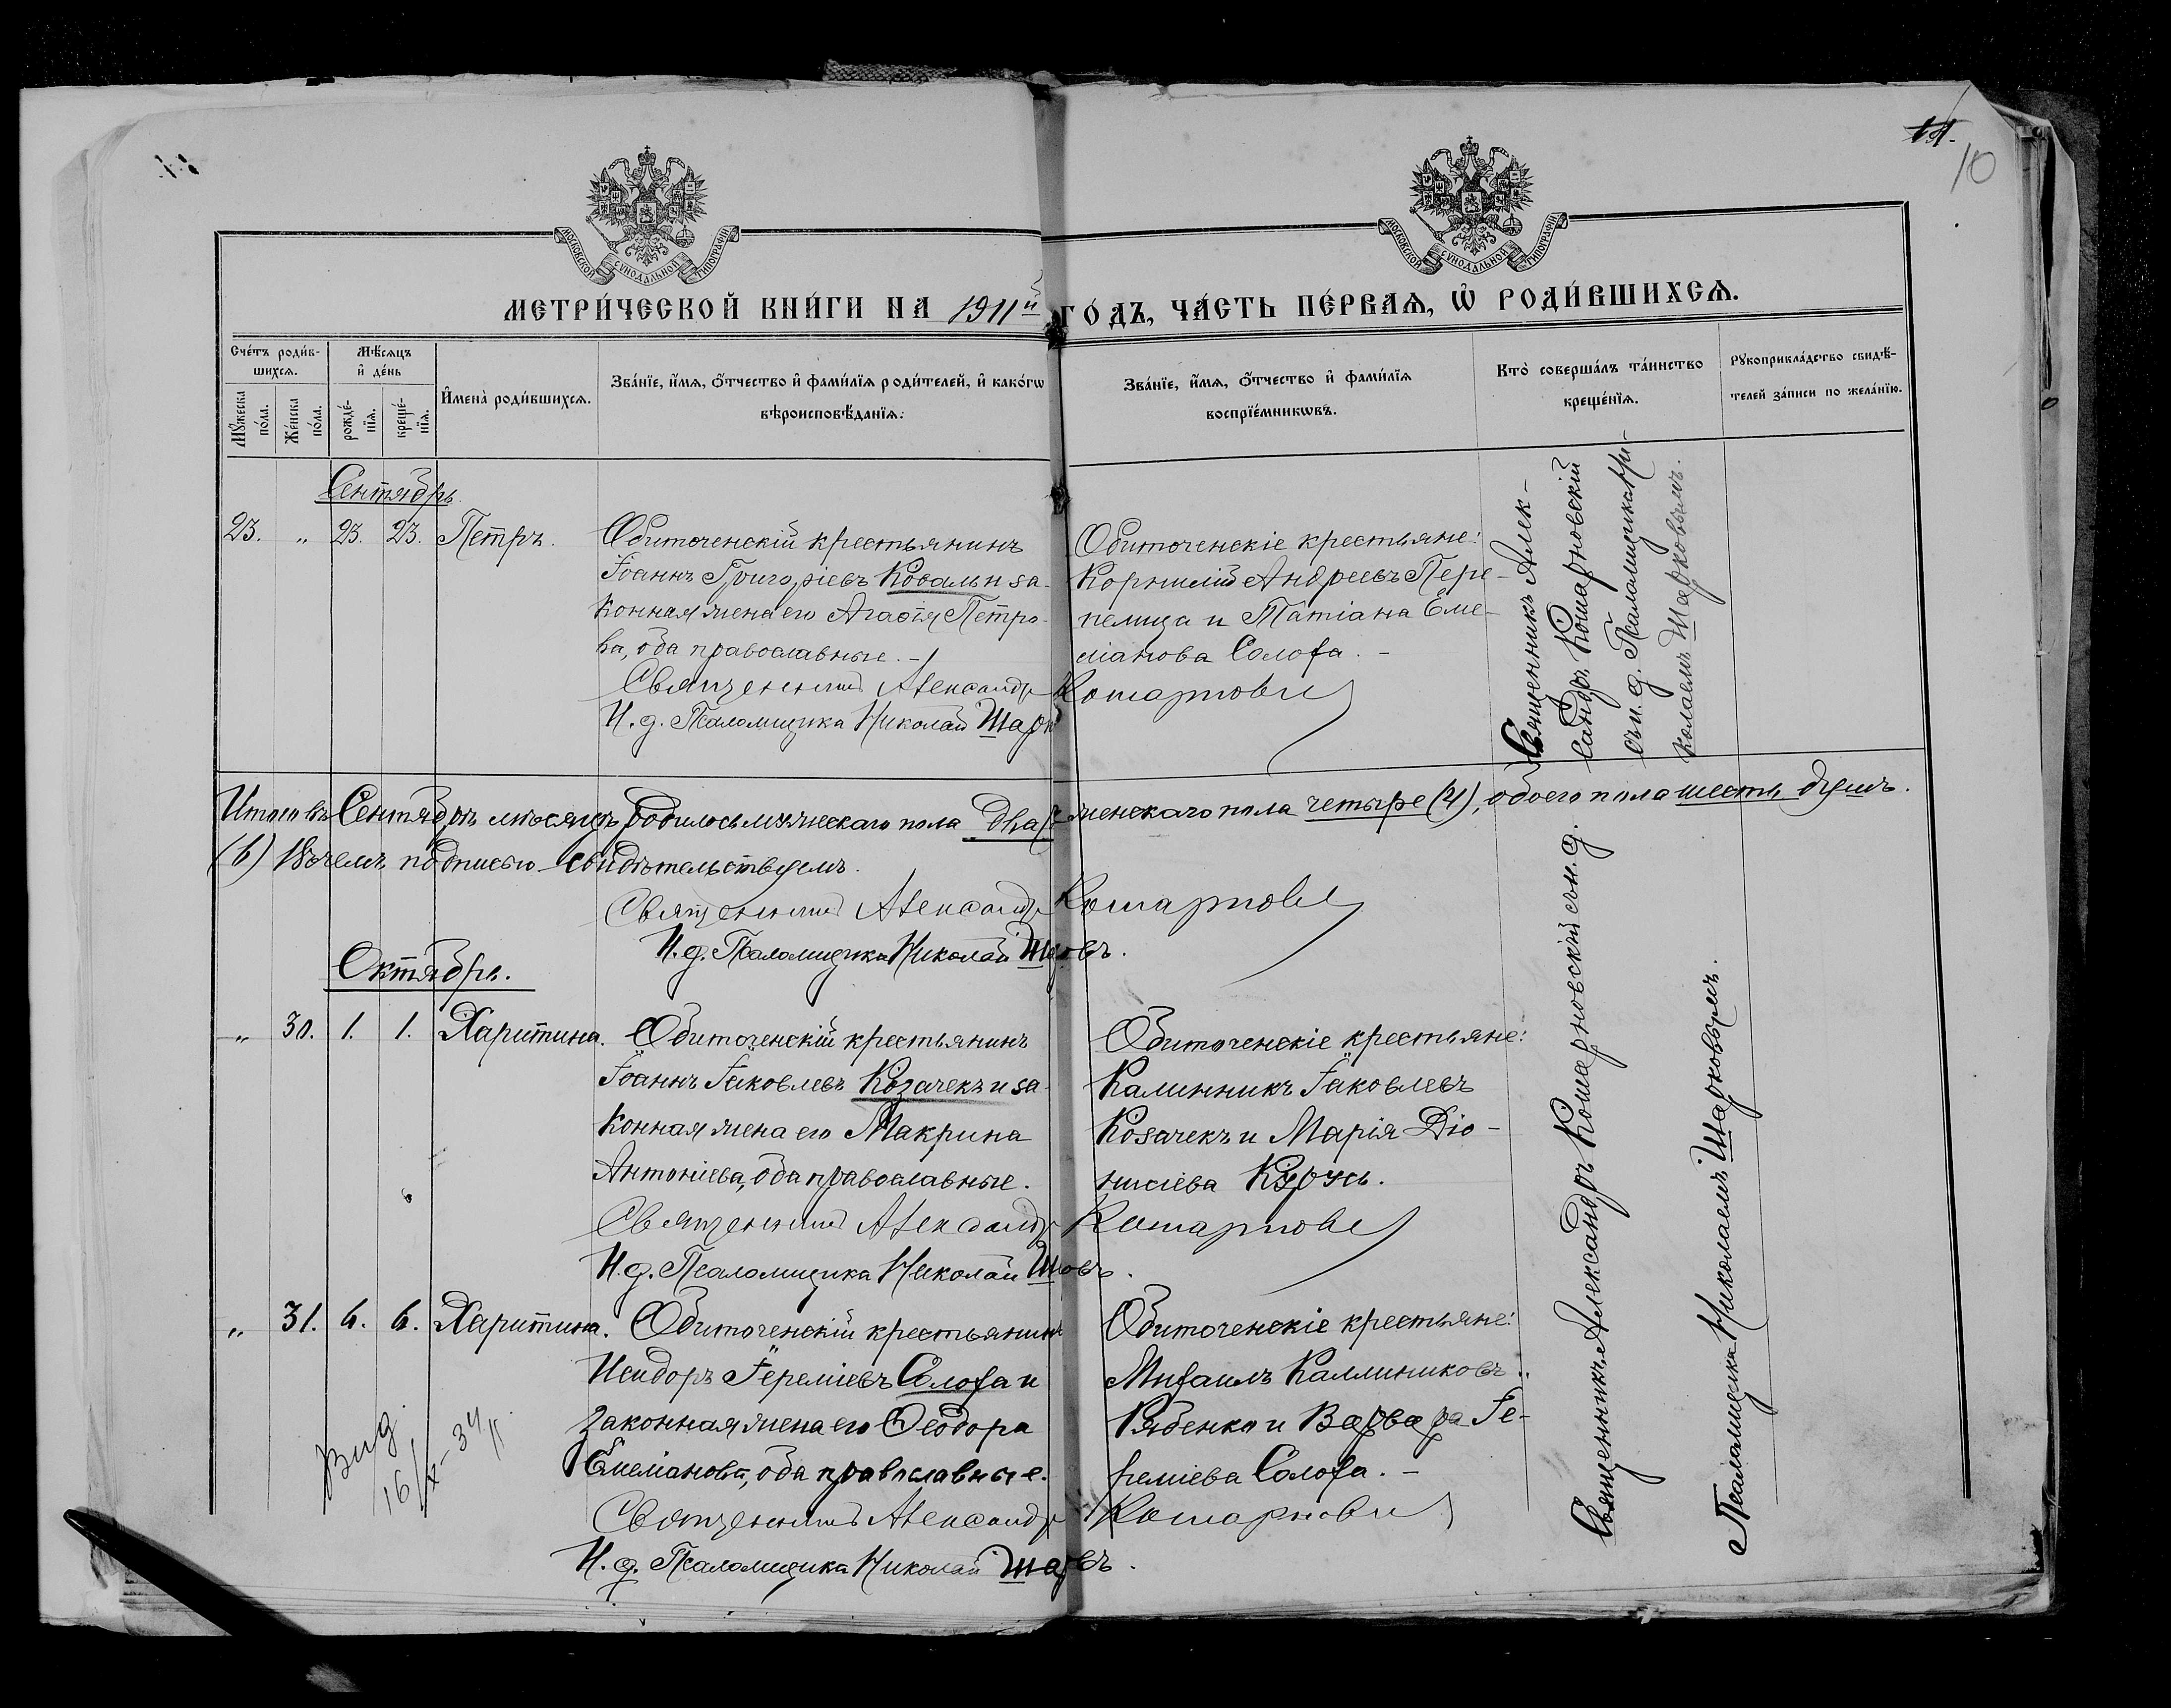 11.
10
МОСКОВСКОЙ СѴНОДАЛЬНОЙ ТИПОГРАФІИ
МОСКОВСКОЙ СѴНОДАЛЬНОЙ ТИПОГРАФІИ
МЕТРИ́ЧЕСКОЙ КНИ́ГИ НА 1911й ГО́ДЪ, ЧА́СТЬ ПЕ́РВАѦ, Ѡ҆ РОДИ́ВШИХСѦ.
Сче́тъ роди́в-
шихсѧ.
Мꙋ́жеска по́ла.
Же́нска по́ла.
Мѣ́сѧцъ и҆ де́нь
рожде́-нїѧ.
креще́-нїѧ.
И҆мена̀ роди́вшихсѧ.
Зва́нїе, и҆́мѧ, ѻ҆́тчество и҆ фами́лїѧ роди́телей, и҆ како́гѡ
вѣроисповѣ́данїѧ.
Зва́нїе, и҆́мѧ, ѻ҆́тчество и҆ фами́лїѧ
воспрїе́мникѡвъ.
Кто̀ соверша́лъ та́инство
креще́нїѧ.
Рꙋкоприкла́дство свидѣ́-
телей за́писи по жела́нїю.
Сентябрь
23. „ 23. 23. Петръ.
Обиточенскій крестьянинъ
Іоаннъ Григоріевъ Коваль и за-
конная жена его Агаѳія Петро-
ва, оба православные. –
Священникъ Александръ Комарновскій
И. д. Псаломщика Николай Шарк
Обиточенскіе крестьяне:
Корнилій Андреевъ Пере-
пелица и Татіана Еме-
ліанова Солоха. –
Священникъ Алек-
сандръ Комарновскій
съ и. д. Псаломщика Ни-
колаемъ Шарковымъ.
Итого въ Сентябрѣ мѣсяцѣ родилось мужескаго пола два женскаго пола четыре (4), обоего пола шесть душъ.
(6) Въ чемъ подписью свидѣтельствуемъ.
Священникъ Александръ Комарновскій
И. д. Псаломщика Николай Шарковъ.
Октябрь.
„ 30. 1. 1. Харитина.
Обиточенскій крестьянинъ
Іоаннъ Іаковлевъ Козачекъ и за-
конная жена его Макрина
Антоніева, оба православные.
Священникъ Александръ Комарновскій
И. д. Псаломщика Николай Шарковъ.
Обиточенскіе крестьяне:
Калинникъ Іаковлевъ
Козачекъ и Марія Діо-
нисіева Курусь.
„ 31. 6. 6. Харитина.
Обиточенскій крестьянинъ
Исидоръ Іереміевъ Солоха и
законная жена его Ѳеодора
Емеліанова, оба православные.
Священникъ Александръ Комарновскій
И. д. Псаломщика Николай Шарковъ.
Обиточенскіе крестьяне:
Михаилъ Каллиниковъ
Рябенко и Варвара Іе-
реміева Солоха. –
Священникъ Александръ Комарновскій съ и. д.
Псаломщика Николаемъ Шарковымъ.
Вид.
16/X–34